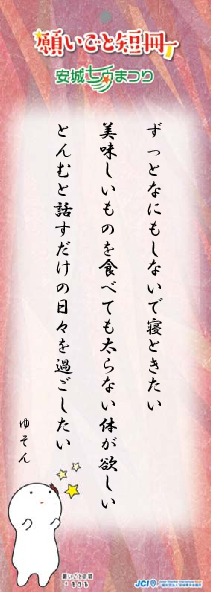 願いごと短冊
安城七夕まつり
ずっとなにもしないで寝ときたい
美味しいものを食べても太らない体が欲しい
とんむと話すだけの日々を過ごしたい
ゆそん
願いごと短冊
JCI